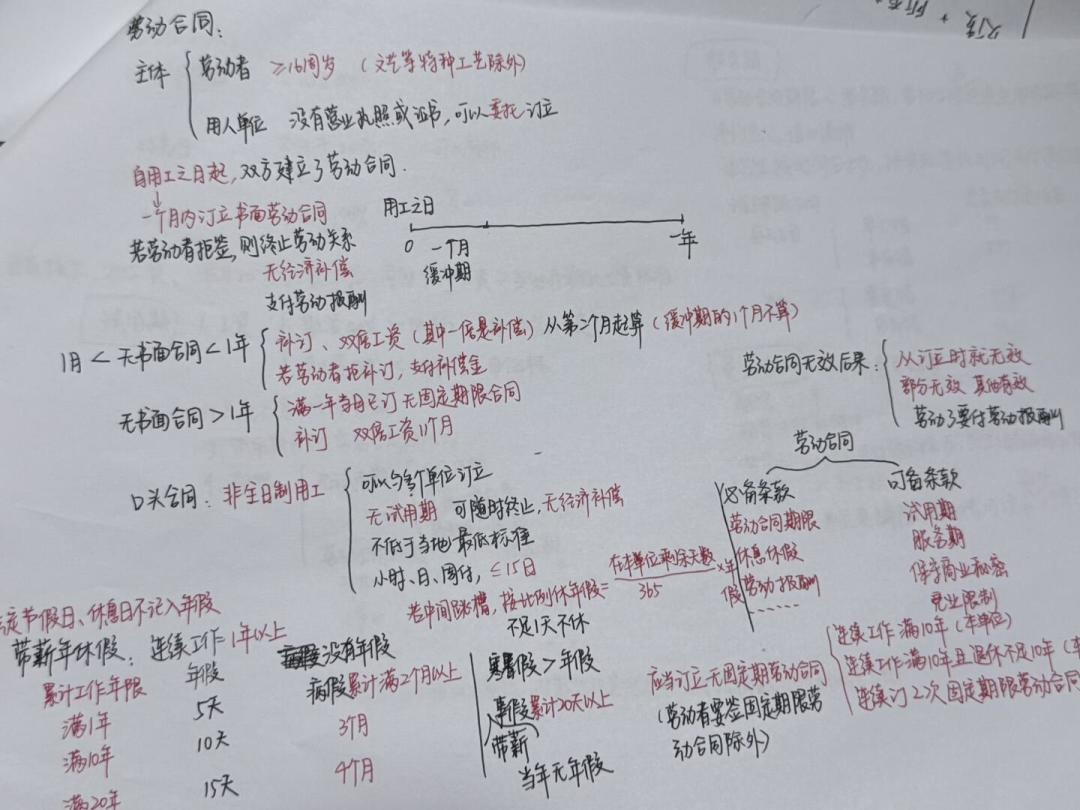 劳动合同:
主体 劳动者 ≥16周岁 (文艺等特种工艺除外)
用人单位 没有营业执照或证书,可以委托订立
自用工之日起,双方建立了劳动合同.
↓
一个月内订立书面劳动合同
若劳动者拒签,则终止劳动关系
无经济补偿
支付劳动报酬
用工之日
0 一个月 一年
缓冲期
1月 < 无书面合同 < 1年
补订、双倍工资 (其中一倍是补偿) 从第2个月起算 (缓冲期的1个月不算)
若劳动者拒补订,支付补偿金
无书面合同 > 1年
满一年当日已订无固定期限合同
补订 双倍工资11个月
劳动合同无效后果:
从订立时就无效
部分无效 其他有效
劳动了要付劳动报酬
口头合同: 非全日制用工
可以与多个单位订立
无试用期 可随时终止,无经济补偿
不低于当地最低标准
小时、日、周付, ≤15日
劳动合同
必备条款 可备条款
劳动合同期限 试用期
休息休假 服务期
劳动报酬 保守商业秘密
…… 竞业限制
若中间跳槽,按比例休年假= 在本单位剩余天数/365 ×年假
不足1天不休
定节假日、休息日不记入年假
带薪年休假: 连续工作1年以上
累计工作年限 年假 没有年假
满1年 5天 病假累计满2个月以上
满10年 10天 3个月
满20年 15天 4个月
寒暑假 > 年假
事假累计20天以上
带薪
当年无年假
应当订立无固定期劳动合同
(劳动者要签固定期限劳
动合同除外)
连续工作满10年 (本单位)
连续工作满10年且退休不足10年
连续订2次固定期限劳动合同